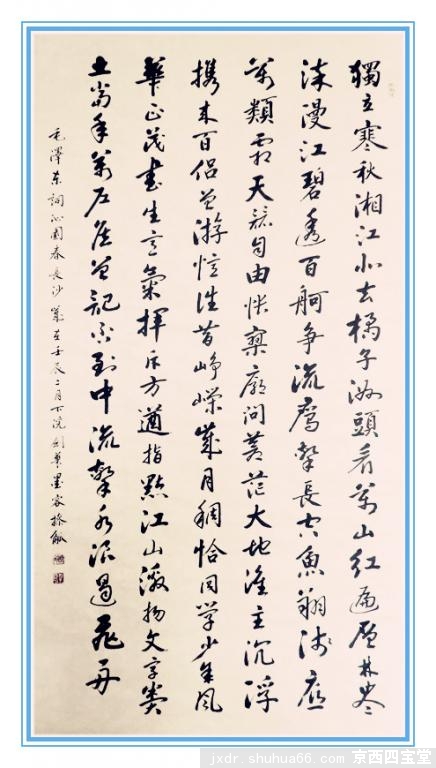 獨立寒秋湘江北去橘子洲頭看萬山紅遍層林盡
染漫江碧透百舸争流鷹擊長空魚翔淺底
萬類霜天競自由悵寥廓問蒼茫大地誰主沉浮
携来百侣曾游憶往昔崢嶸歲月稠恰同學少年風
華正茂書生意氣揮斥方遒指點江山激揚文字糞
土當年萬户侯曾記否到中流擊水浪遏飛舟
毛澤东詞沁園春長沙歲在壬辰二月下浣劍墨客振
jxdr.shuhua66.com 京西四宝堂